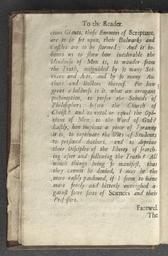 To the Reader.
cious Giants, those Enemies of Scripture,
are to be set upon, their Bulwarks and
Castles are to be stormed: And it be-
hoves us to shew how intolerable the
blindness of Men is, to wander from
the Truth, misguided by so many Sci-
ences and Arts, and by so many Au-
thors and Doctors thereof. For how
great a boldness is it, what an arrogant
presumption, to prefer the Schools of
Philosophers before the Church of
Christ? and to extol or equal the Opi-
nions of Men, to the Word of God?
Lastly, how impious a piece of Tyranny
it is, to captivate the Wits of Students
to prefixed Authors, and to deprive
their Disciples of the liberty of search-
ing after and following the Truth? All
which things being so manifest, that
they cannot be denied, I may be the
more easily pardoned, if I seem to have
more freely and bitterly inveighed
against some sorts of Sciences and their
Professors.
Farewel.
The